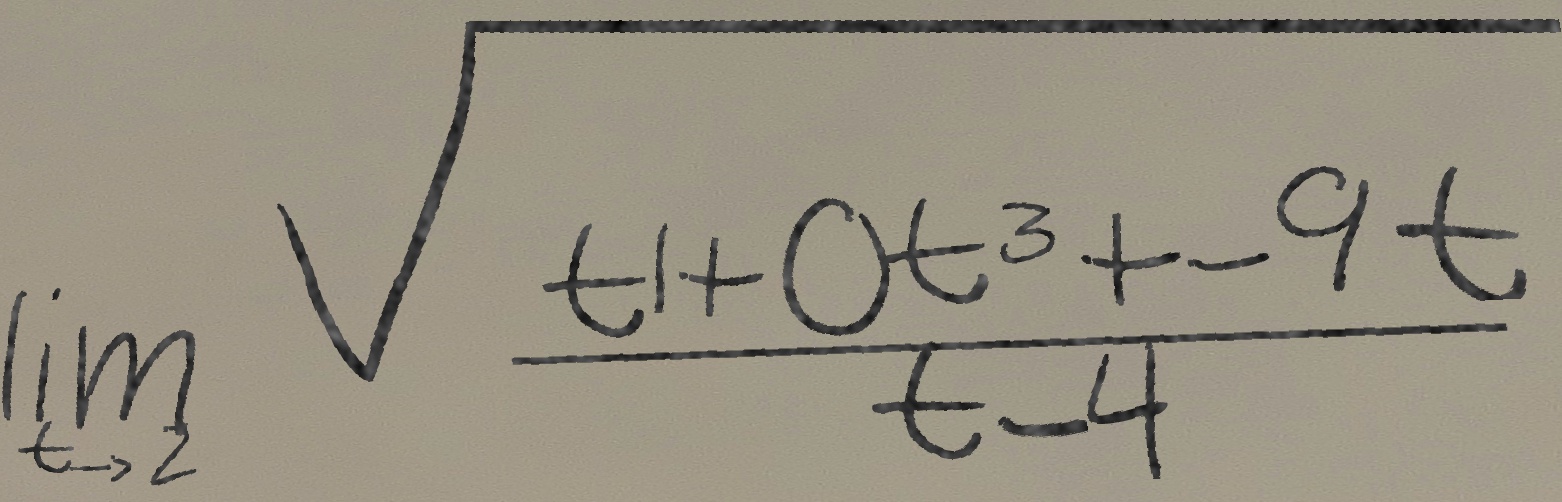 \lim_{t \to 2} \sqrt{\frac{t1+0t^3+-9t}{t-4}}